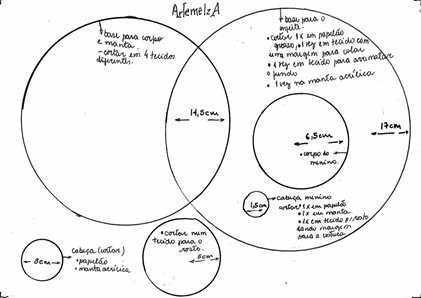 ArtemelzA
base para corpo
e manta.
- cortar em 4 tecidos
diferentes.
base para o
• cortar 1x em papelão
grosso, 1 vez em tecido com
uma margem para colar
• 1 vez em tecido para arrematar
o fundo
• 1 vez na manta acrílica
14,5cm
6,5cm
• corpo do
menino.
17cm
1,5cm
cabeça menino
cortar: 1x em papelão
• 1x em manta
• 1x em tecido p/ rosto
dando margem
para a costura
• cortar num
tecido para o
rosto.
5cm
3cm
cabeça (cortar)
• papelão
• manta acrílica